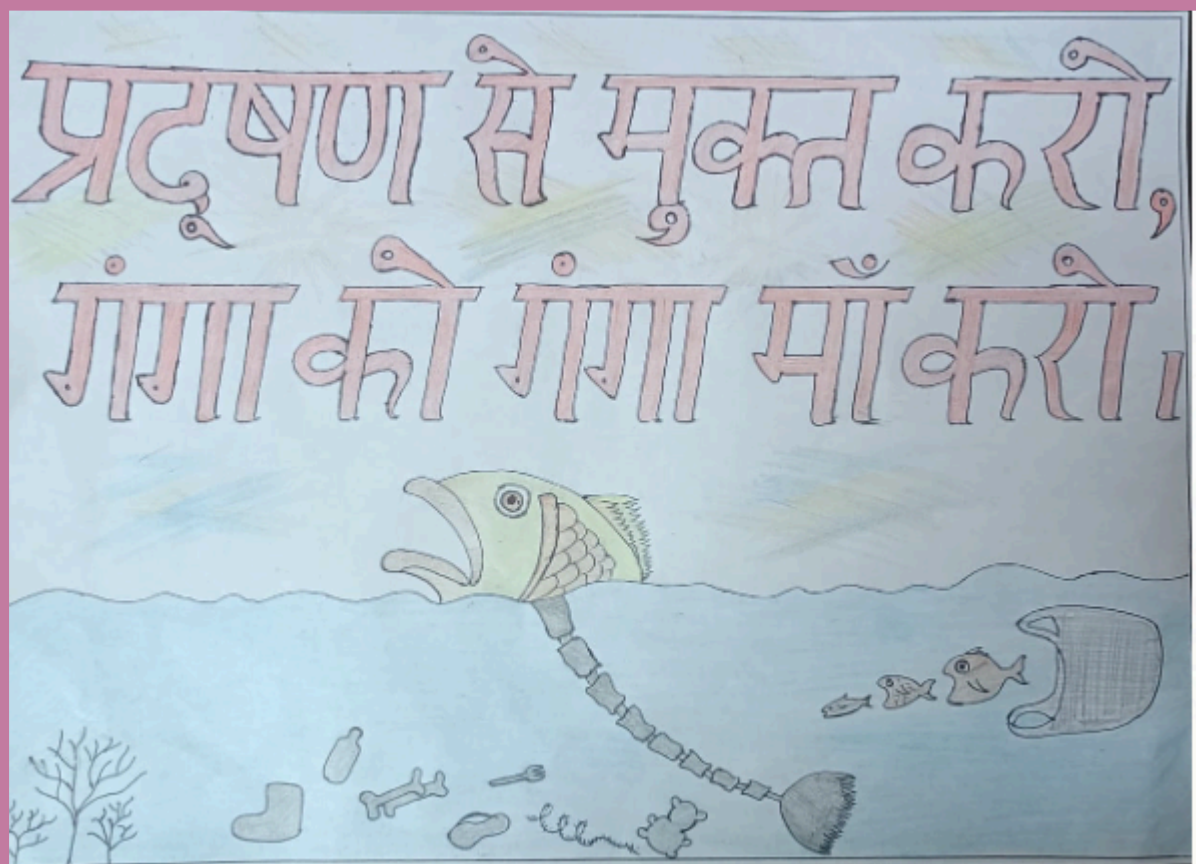 प्रदूषण से मुक्त करो,
गंगा को गंगा माँ करो।